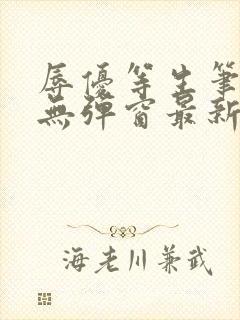 辱優等生筆
無彈窗最新
海老川兼武